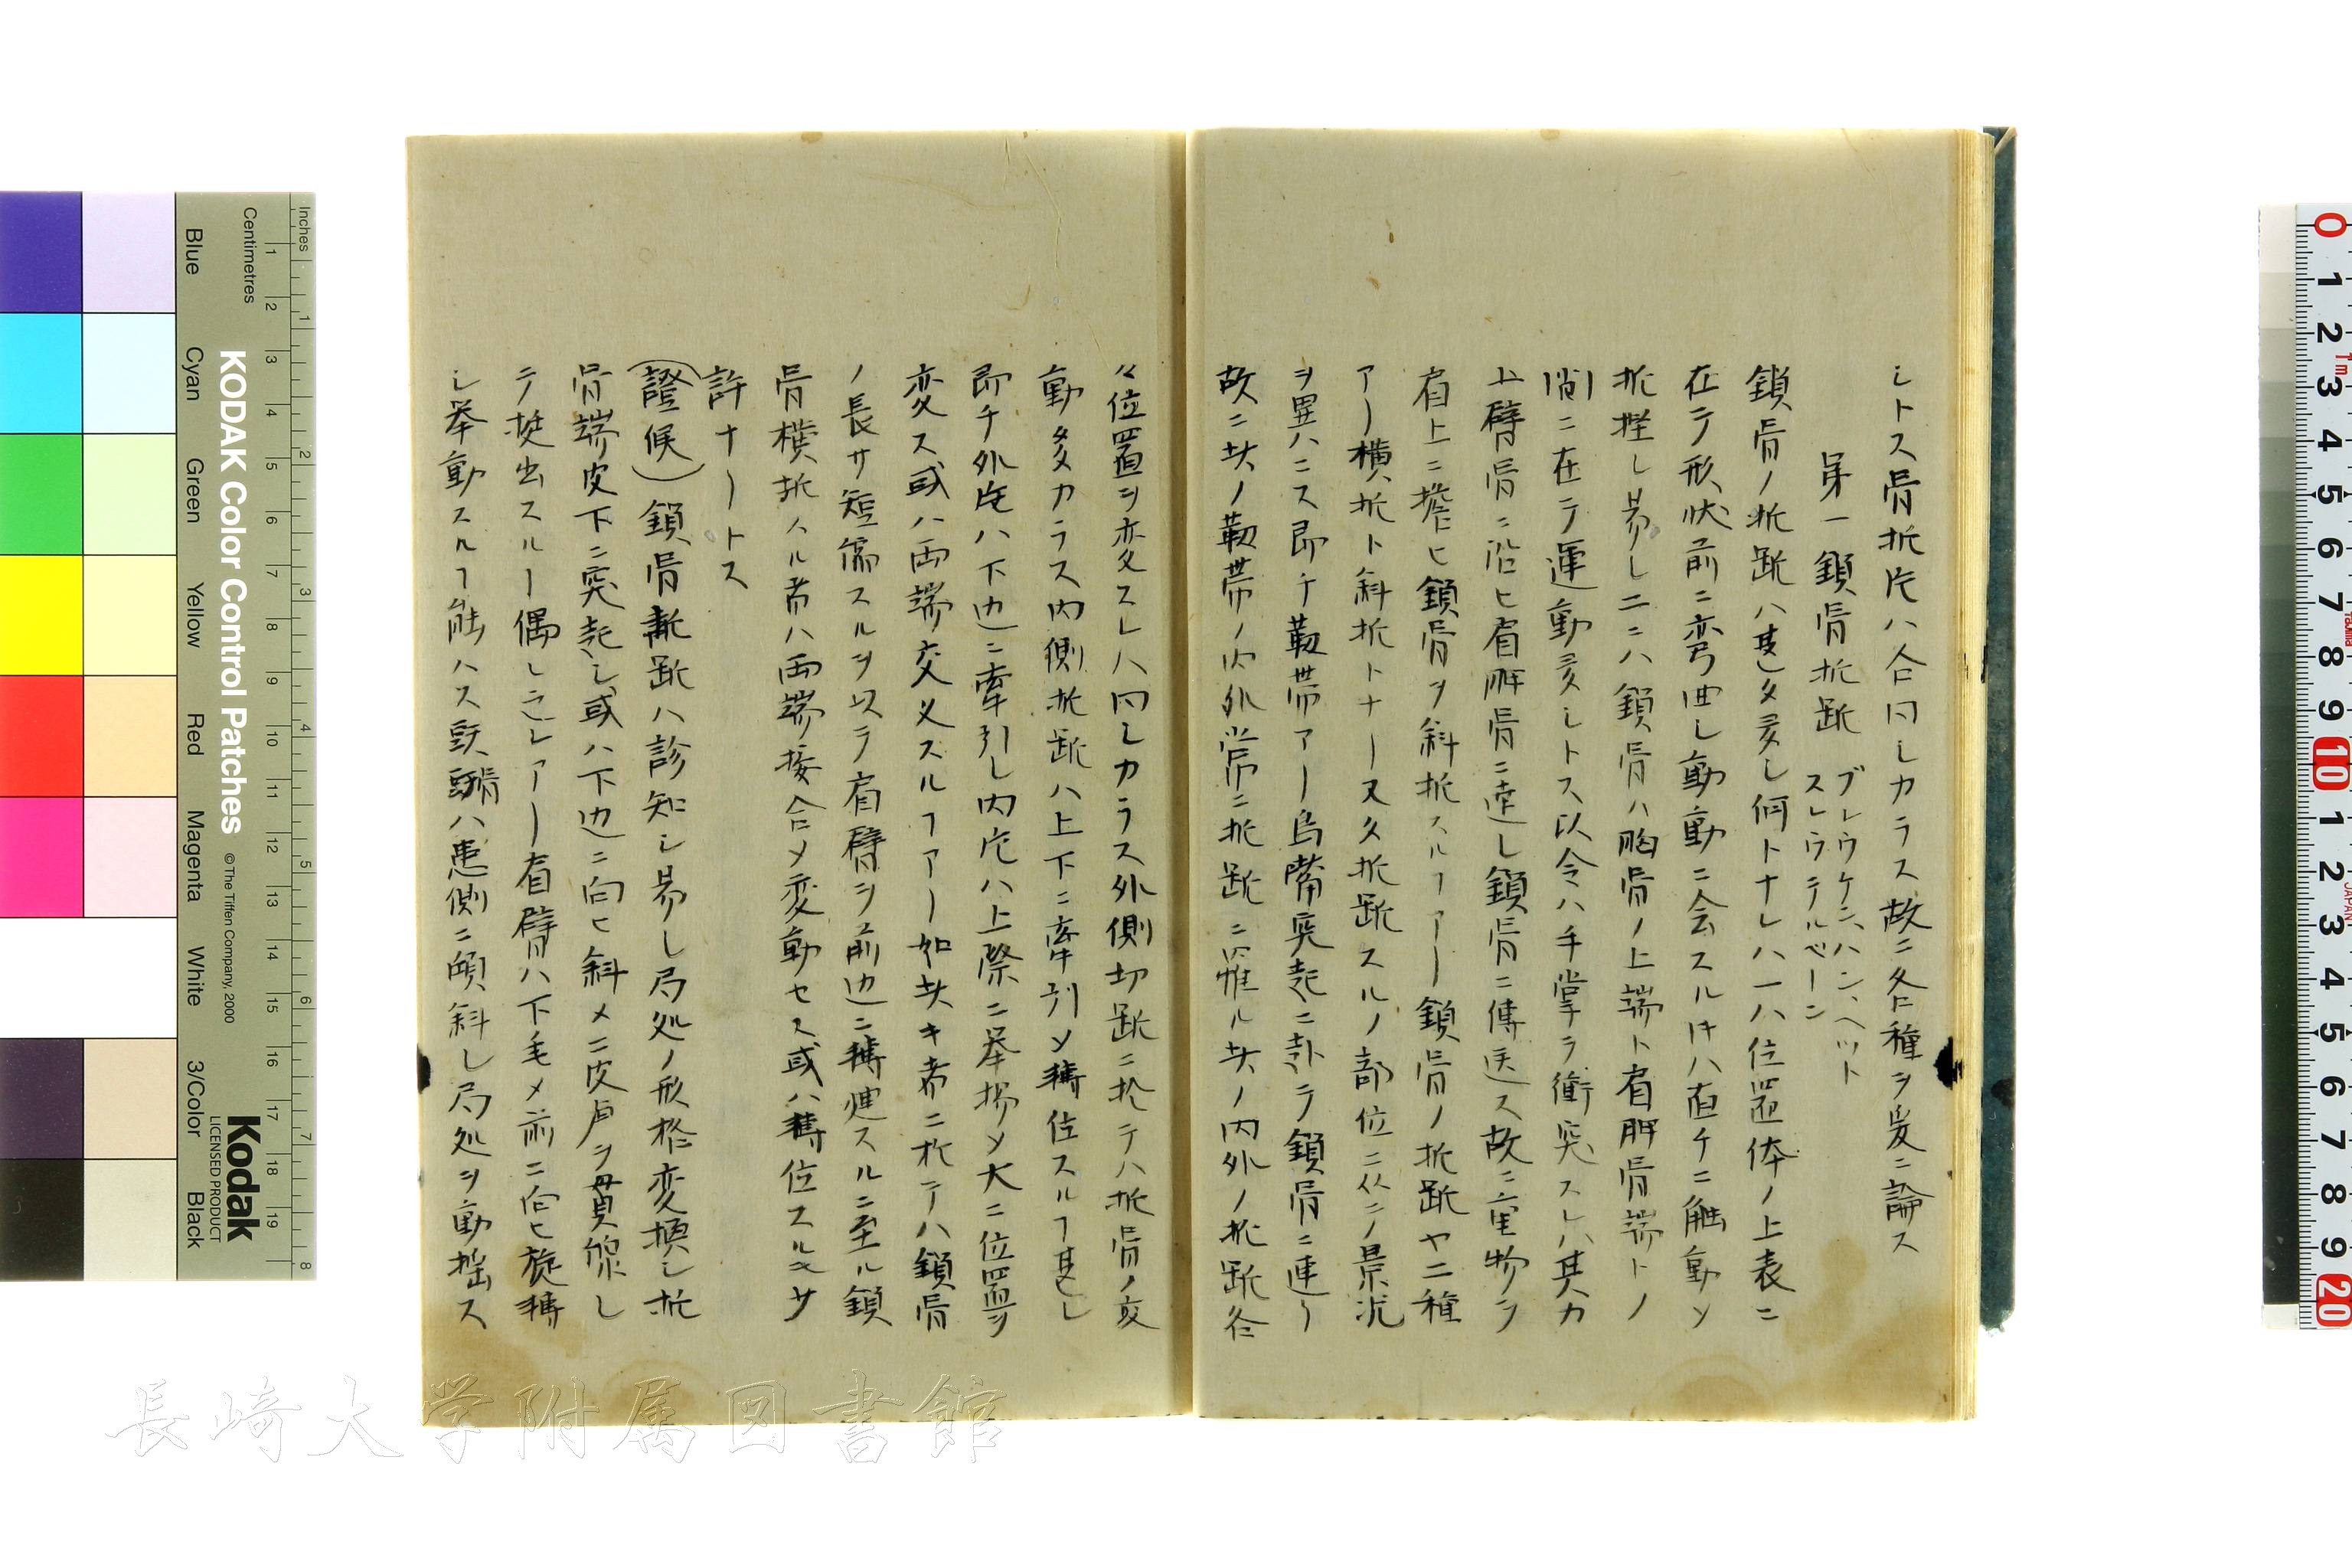 シトス骨折片ハ合同シカラス故ニ各種ヲ爰ニ論ス
第一鎖骨折跐 ブレウケン、ハン、ヘット
スレウテルベーン
鎖骨ノ折跐ハ甚タ多シ何トナレハ一ハ位置体ノ上表ニ
在テ形状前ニ弯曲シ動動ニ会スル𪜈ハ直チニ触動シ
折挫シ易シ二ニハ鎖骨ハ胸骨ノ上端ト肩胛骨端トノ
間ニ在テ運動多シトス以令ハ手掌ヲ衝突スレハ其力
上臂骨ニ沿ヒ肩胛骨ニ達シ鎖骨ニ傳送ス故ニ重物ヲ
肩上ニ擔ヒ鎖骨ヲ斜折スルヿアリ鎖骨ノ折跐ヤ二種
アリ横折ト斜折トナリ又久折跐スルノ部位ニ从テ景況
ヲ異ハニス即チ靱帯アリ烏嘴突起ニ赴テ鎖骨ニ連リ
故ニ其ノ靱帯ノ内外常ニ折跐ニ罹ル其ノ内外ノ折跐各
々位置ヲ変スレハ同シカラス外側切跐ニ於テハ折骨ノ変
動多カラス内側折跐ハ上下ニ牽引シ轉位スルヿ甚シ
即チ外片ハ下辺ニ牽引シ内片ハ上際ニ挙揚シ大ニ位置ヲ
変ス或ハ両端交叉スルヿアリ如其キ者ニ於テハ鎖骨
ノ長サ短縮スルヲ以テ肩臂ヲ前辺ニ轉運スルニ至ル鎖
骨横折スル者ハ両端接合メ変動セス或ハ轉位スルモサ
許ナリトス
(證候)鎖骨折跐ハ診知シ易シ局処ノ形格変換シ折
骨端皮下ニ突起シ或ハ下辺ニ向ヒ斜メニ皮膚ヲ貫線シ
テ挺出スルー偶シ之レアリ肩臂ハ下垂メ前ニ向ヒ旋轉
シ挙動スルヿ能ハス頭頸ハ患側ニ傾斜シ局処ヲ動揺ス
Inches
Centimetres
Blue
Cyan
Green
Yellow
Red
Magenta
White
3/Color
Black
KODAK Color Control Patches
© The Tiffen Company, 2000
Kodak
LICENSED PRODUCT
長崎大学附属図書館